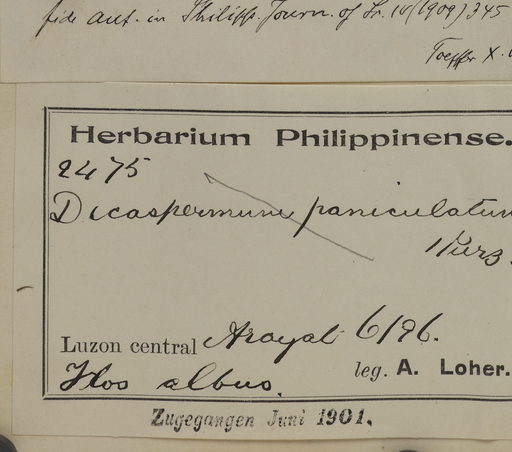 fide aut. in Philipp. Journ. of Sc. IV (1909) 345
Toepffer X.
Herbarium Philippinense.
2475
Dicaspermum paniculatum
Kurz.
Luzon central Arayat 6/96.
Flos albus. leg. A. Loher.
Zugegangen Juni 1901.